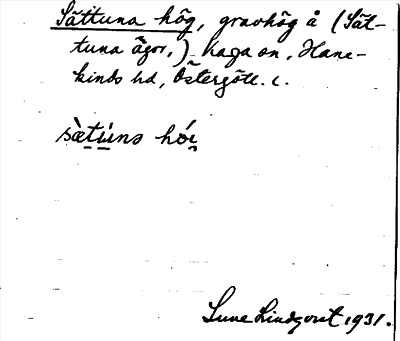 Sättuna hög, gravhög å (Sät-
tuna ägor,) Kaga sn, Hane-
kinds hd, Östergötl. l.
sὰetúns hói
Sune Lindqvist 1931.